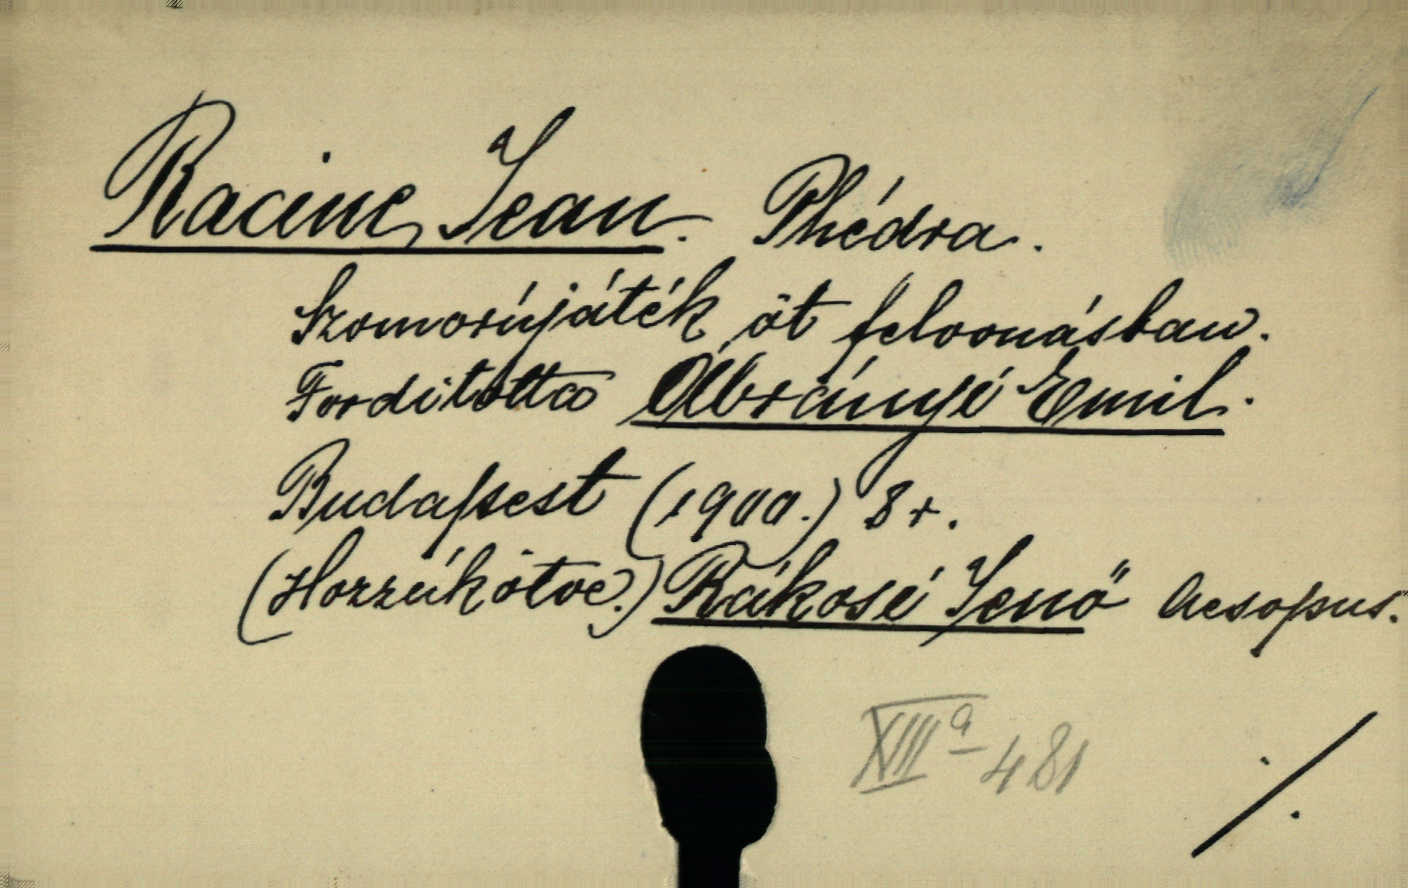 Racine, Jean. Phédra.
Szomorújáték öt felvonásban.
Fordította Ábrányi Emil.
Budapest (1900.) 8 r.
(Hozzákötve.) Rákosi Jenő Aesopus.
XIII a 481